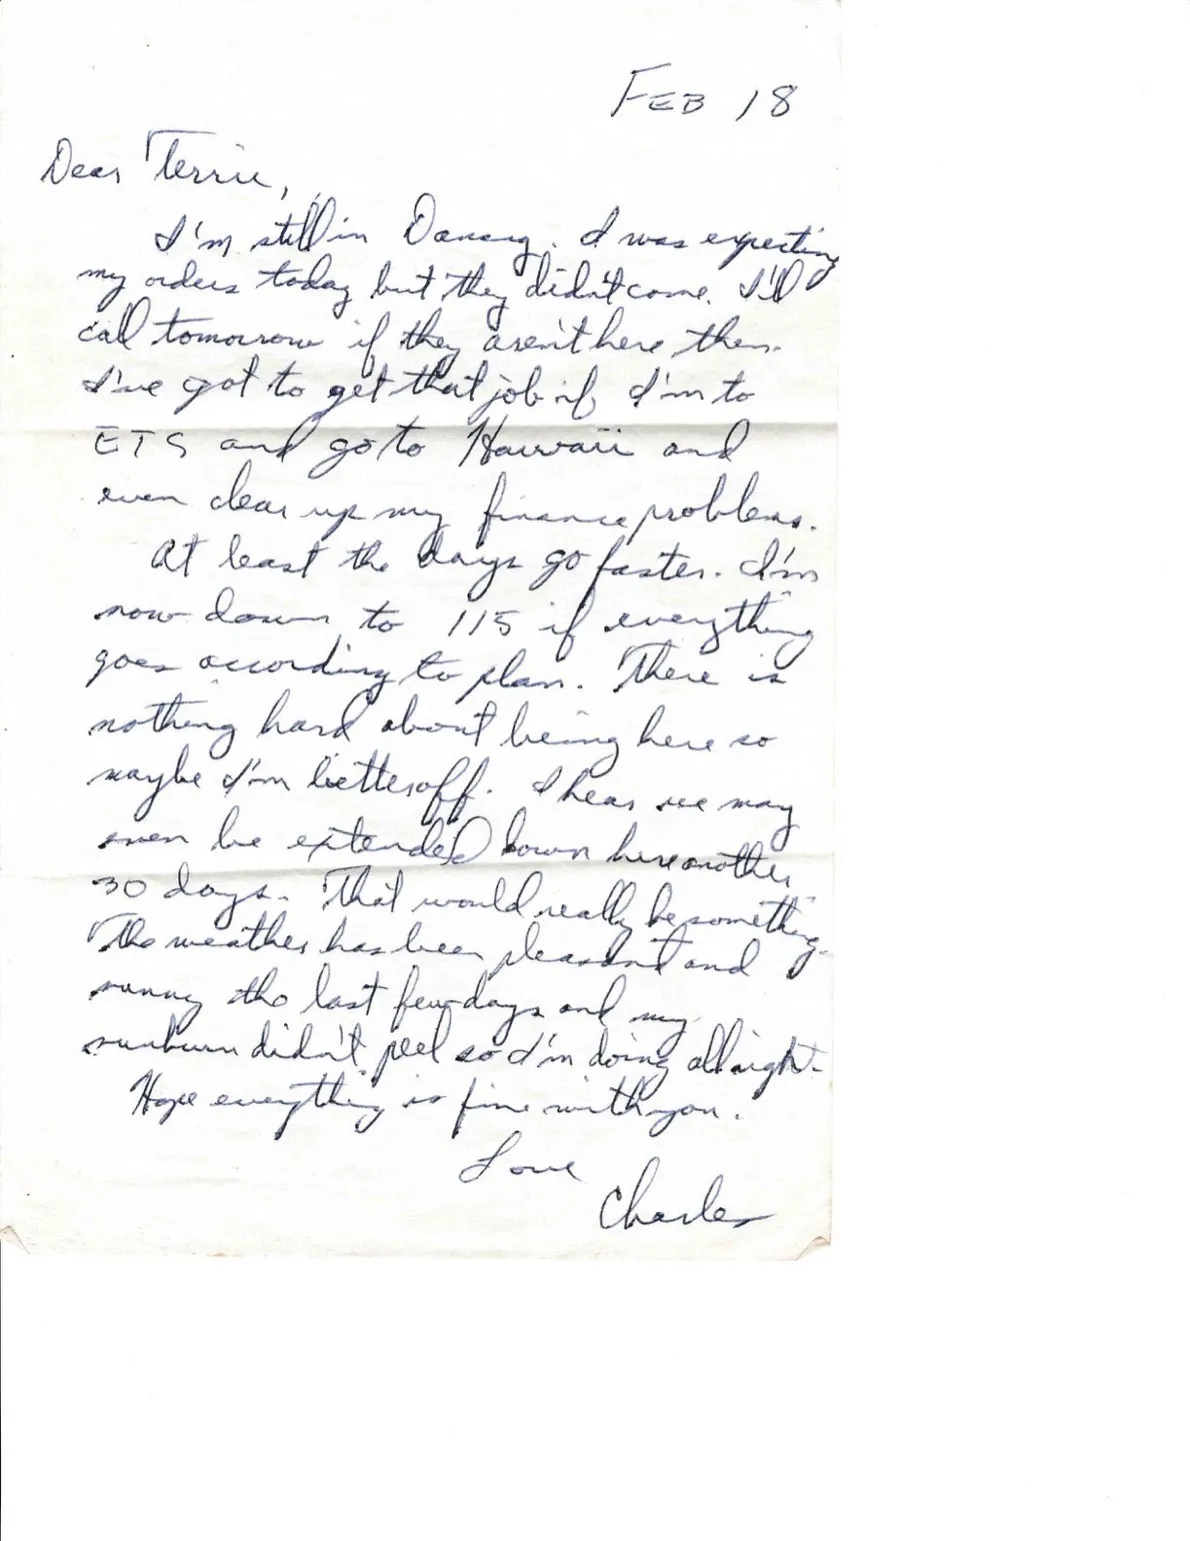 FEB 18
Dear Terrie,
I'm still in Danang. I was expecting
my orders today but they didn't come. I'll
call tomorrow if they aren't here then.
I've got to get that job if I'm to
ETS and go to Hawaii and
even clear up my finance problems.
At least the days go faster. I'm
now down to 115 if everything
goes according to plan. There is
nothing hard about being here so
maybe I'm better off. I hear we may
even be extended down here another
30 days. That would really be something.
The weather has been pleasant and
sunny the last few days and my
sunburn didn't peel so I'm doing allright.
Hope everything is fine with you.
Love
Charles